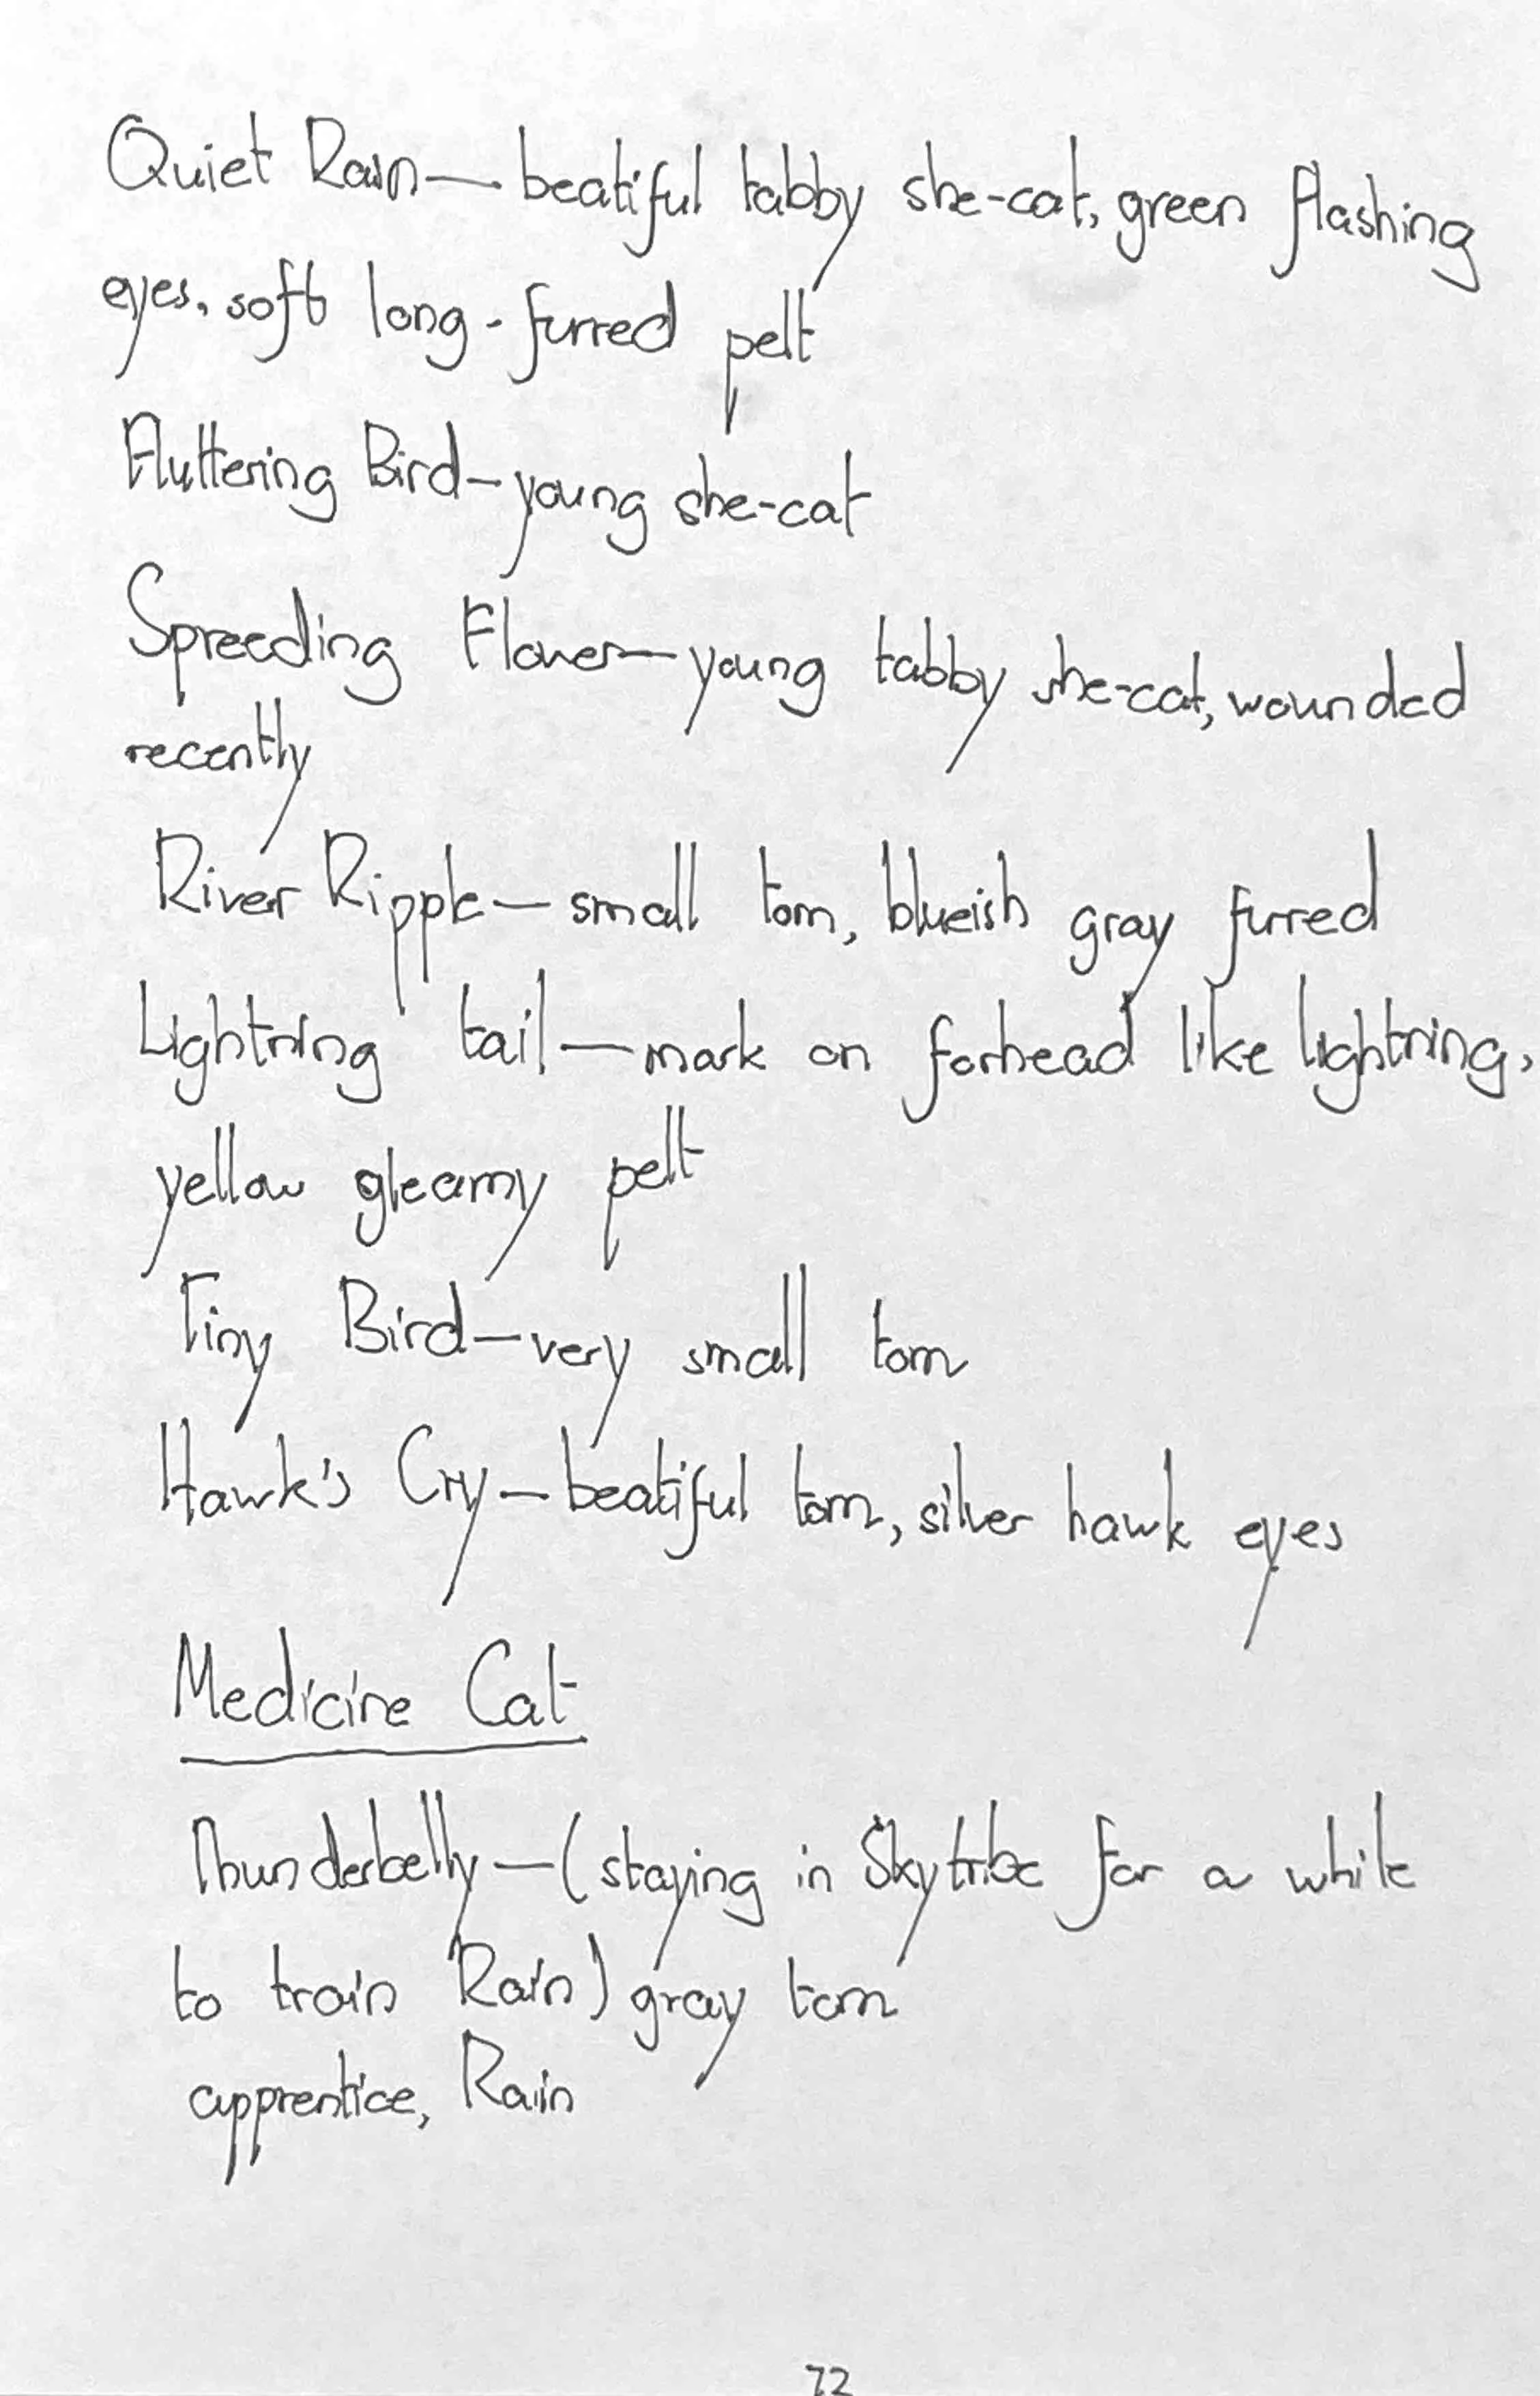 Quiet Rain—beatiful tabby she-cat, green flashing
eyes, soft long-furred pelt
Fluttering Bird—young she-cat
Spreeding Flower—young tabby she-cat, wounded
recently
River Ripple—small tom, blueish gray furred
Lightning tail—mark on forhead like lightning,
yellow gleamy pelt
Tiny Bird—very small tom
Hawk's Cry—beatiful tom, silver hawk eyes
Medicine Cat
Thunderbelly—(staying in Skytribe for a while
to train Rain) gray tom
apprentice, Rain
72